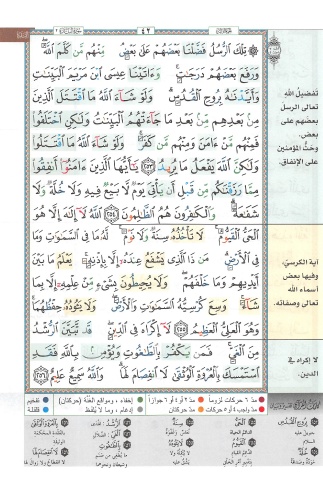 ٤٢
تِلْكَ ٱلرُّسُلُ فَضَّلْنَا بَعْضَهُمْ عَلَىٰ بَعْضٍ مِّنْهُم مَّن كَلَّمَ ٱللَّهُ
وَرَفَعَ بَعْضَهُمْ دَرَجَٰتٍ وَءَاتَيْنَا عِيسَى ٱبْنَ مَرْيَمَ ٱلْبَيِّنَٰتِ
وَأَيَّدْنَٰهُ بِرُوحِ ٱلْقُدُسِ وَلَوْ شَآءَ ٱللَّهُ مَا ٱقْتَتَلَ ٱلَّذِينَ
مِنۢ بَعْدِهِم مِّنۢ بَعْدِ مَا جَآءَتْهُمُ ٱلْبَيِّنَٰتُ وَلَٰكِنِ ٱخْتَلَفُوا۟
فَمِنْهُم مَّنْ ءَامَنَ وَمِنْهُم مَّن كَفَرَ وَلَوْ شَآءَ ٱللَّهُ مَا ٱقْتَتَلُوا۟
وَلَٰكِنَّ ٱللَّهَ يَفْعَلُ مَا يُرِيدُ ٢٥٣ يَٰٓأَيُّهَا ٱلَّذِينَ ءَامَنُوٓا۟ أَنفِقُوا۟
مِمَّا رَزَقْنَٰكُم مِّن قَبْلِ أَن يَأْتِىَ يَوْمٌ لَّا بَيْعٌ فِيهِ وَلَا خُلَّةٌ وَلَا
شَفَٰعَةٌ وَٱلْكَٰفِرُونَ هُمُ ٱلظَّٰلِمُونَ ٢٥٤ ٱللَّهُ لَآ إِلَٰهَ إِلَّا هُوَ
ٱلْحَىُّ ٱلْقَيُّومُ لَا تَأْخُذُهُۥ سِنَةٌ وَلَا نَوْمٌ لَّهُۥ مَا فِى ٱلسَّمَٰوَٰتِ وَمَا
فِى ٱلْأَرْضِ مَن ذَا ٱلَّذِى يَشْفَعُ عِندَهُۥٓ إِلَّا بِإِذْنِهِۦ يَعْلَمُ مَا بَيْنَ
أَيْدِيهِمْ وَمَا خَلْفَهُمْ وَلَا يُحِيطُونَ بِشَىْءٍ مِّنْ عِلْمِهِۦٓ إِلَّا بِمَا
شَآءَ وَسِعَ كُرْسِيُّهُ ٱلسَّمَٰوَٰتِ وَٱلْأَرْضَ وَلَا يَـُٔودُهُۥ حِفْظُهُمَا
وَهُوَ ٱلْعَلِىُّ ٱلْعَظِيمُ ٢٥٥ لَآ إِكْرَاهَ فِى ٱلدِّينِ قَد تَّبَيَّنَ ٱلرُّشْدُ
مِنَ ٱلْغَىِّ فَمَن يَكْفُرْ بِٱلطَّٰغُوتِ وَيُؤْمِنۢ بِٱللَّهِ فَقَدِ
ٱسْتَمْسَكَ بِٱلْعُرْوَةِ ٱلْوُثْقَىٰ لَا ٱنفِصَامَ لَهَا وَٱللَّهُ سَمِيعٌ عَلِيمٌ ٢٥٦
تفضيل الله
تعالى الرسل
بعضهم على
بعض،
وحثّ المؤمنين
على الإنفاق.
آية الكرسيّ،
وفيها بعض
أسماء الله
تعالى وصفاته.
لا إكراه في
الدين.
مدّ ٦ حركات لزوماً مدّ ٢ أو ٤ أو ٦ جوازاً إخفاء، ومواقع الغُنَّة (حركتان) تفخيم
مدّ واجب ٤ أو ٥ حركات مدّ حركتان إدغام، وما لا يُلفظ قلقلة